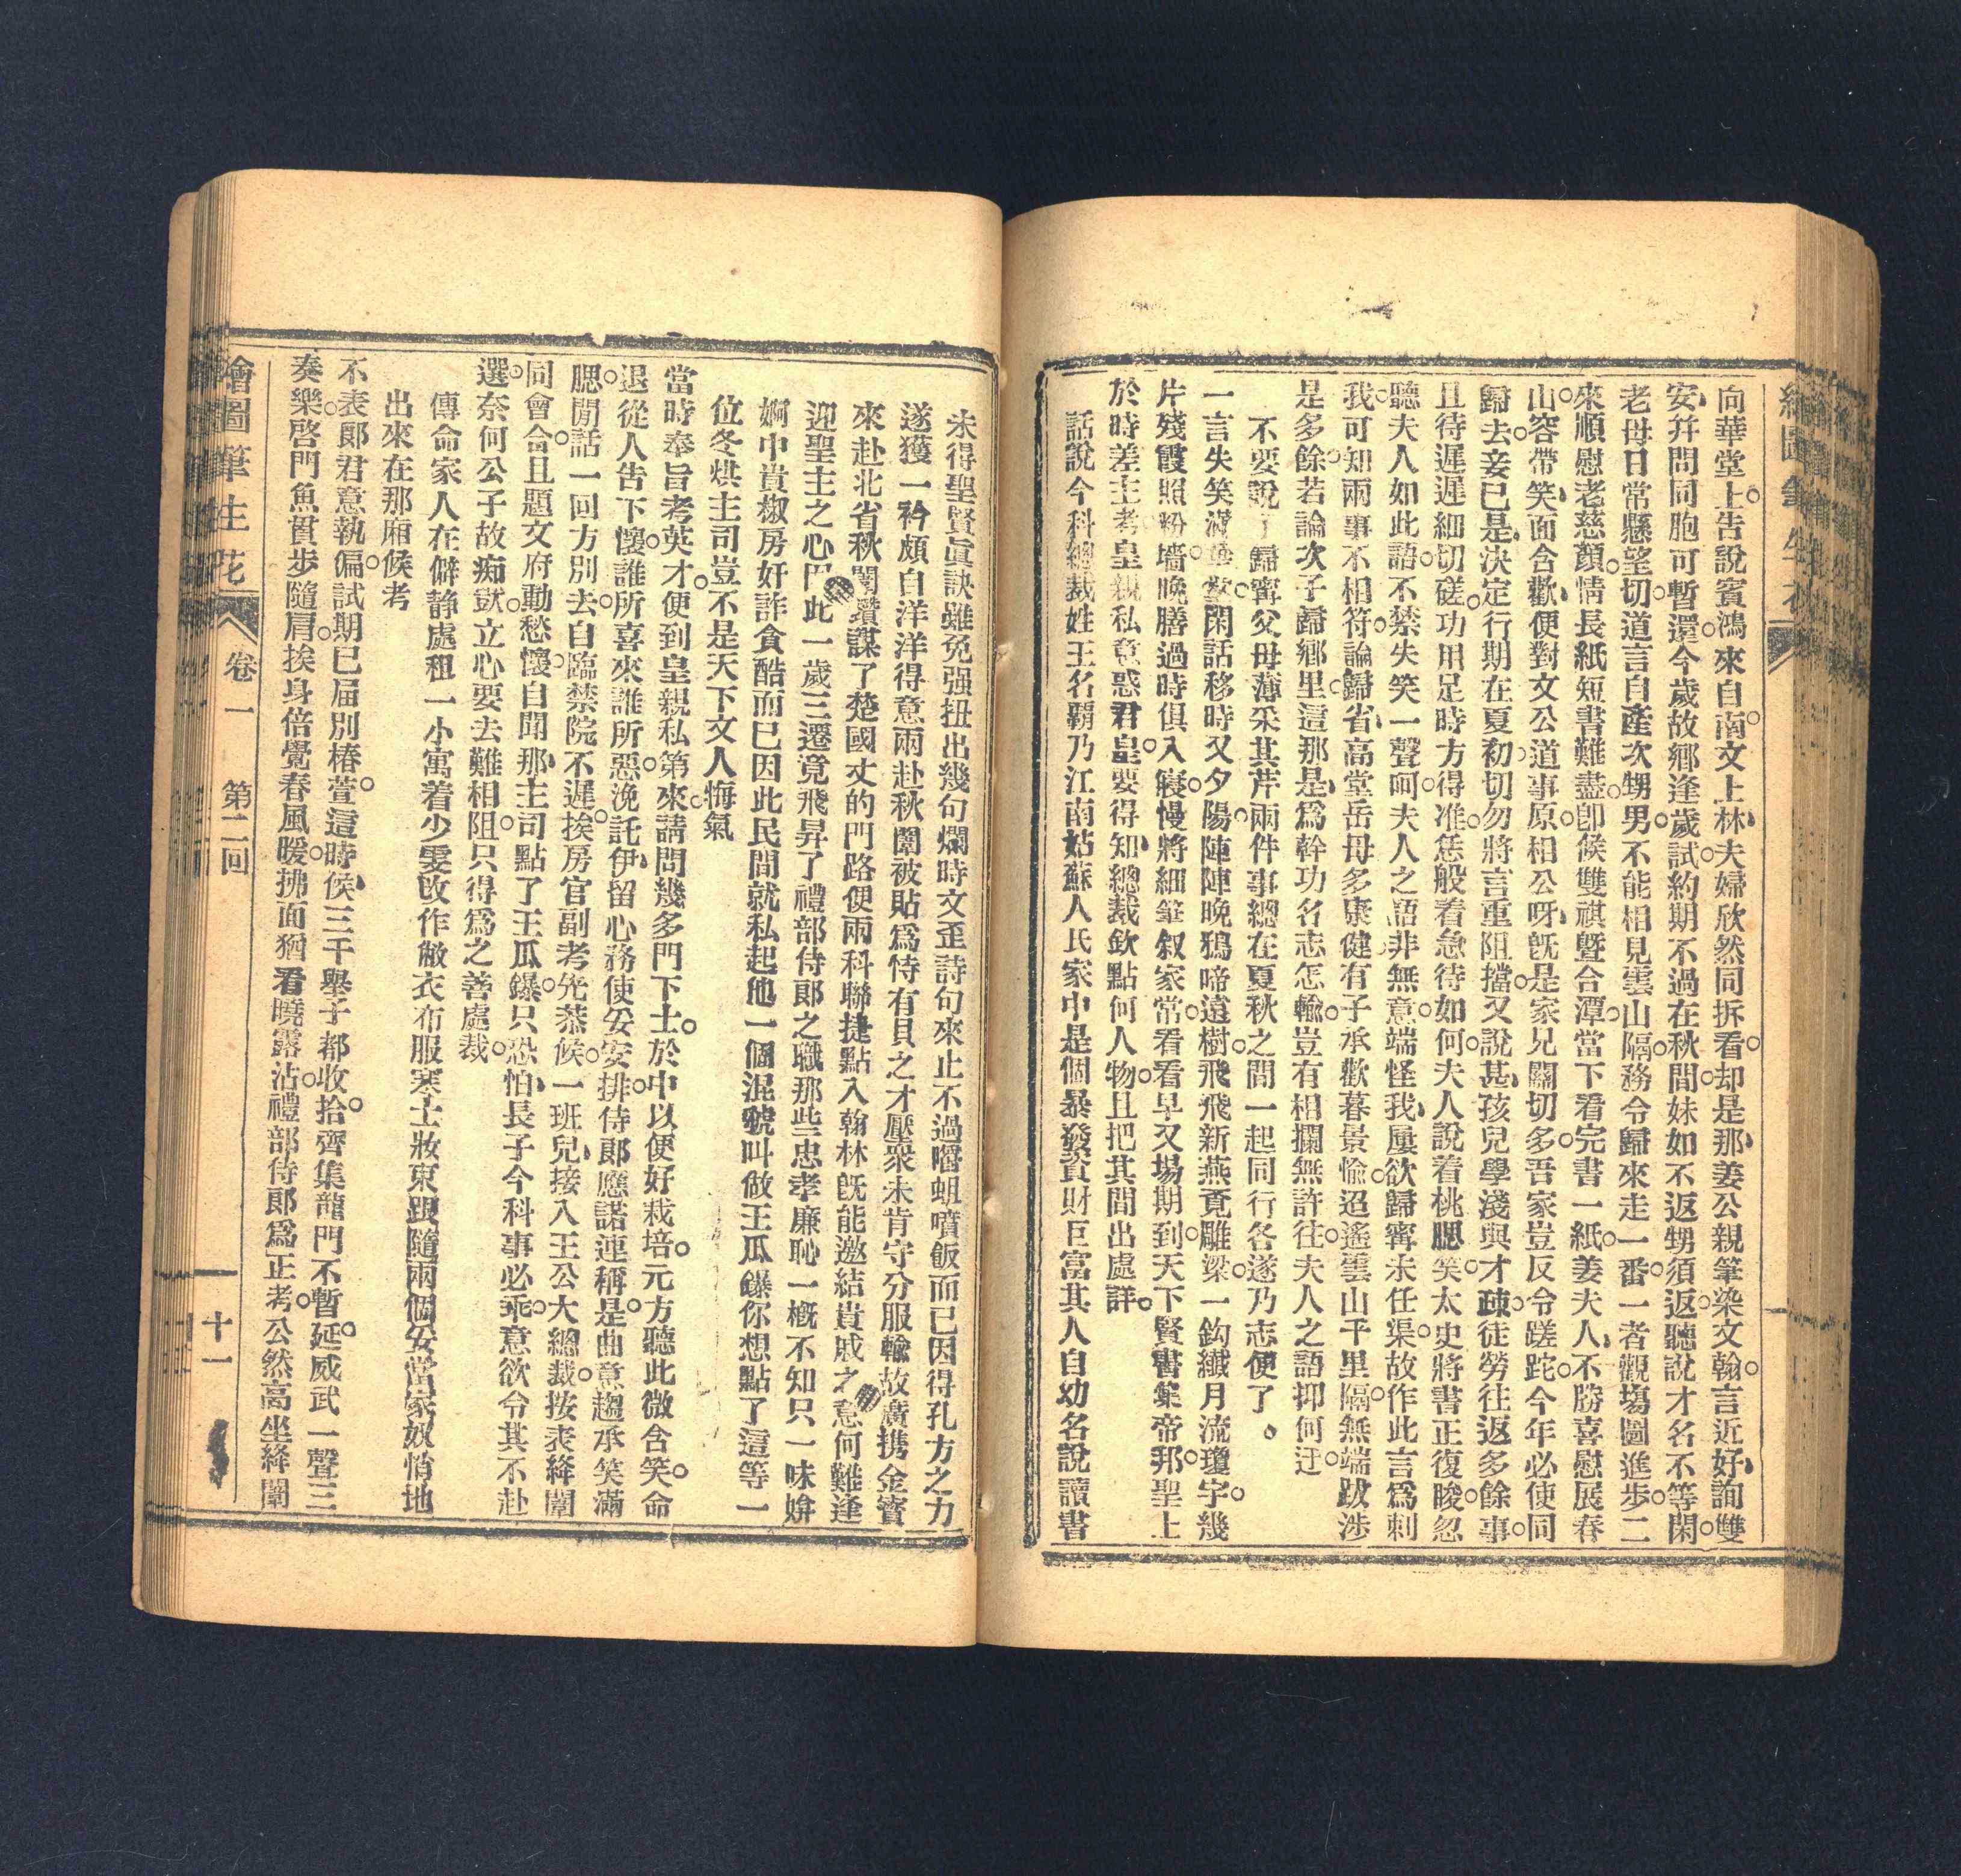 向華堂上。告說賓鴻來自南。文上林夫婦欣然同拆看。却是那姜公親筆染文翰。言近好詢雙
安。幷問同胞可暫還。今歲故鄉逢歲試。約期不過在秋間。妹如不返甥須返。聽說才名不等閑。
老母日常懸望切。道言自產次甥男。不能相見雲山隔。務令歸來走一番。一者觀塲圖進步。二
來順慰老慈顏。情長紙短書難盡。卽候雙祺曁合潭。當下看完書一紙。姜夫人不勝喜慰展春
山。容帶笑面含歡。便對文公道事原。相公呀旣是家兄關切多。吾家豈反令蹉跎。今年必使同
歸去。妾已是決定行期在夏初。切勿將言重阻擋。又說甚孩兒學淺與才疎。徒勞往返多餘事。
且待遲遲細切磋。功用足時方得准。恁般着急待如何。夫人說着桃腮笑。太史將書正復睃。忽
聽夫人如此語。不禁失笑一聲呵。夫人之語非無意。端怪我屢欲歸寧未任渠。故作此言爲刺
我。可知兩事不相符。論歸省高堂岳母多康健。有子承歡暮景愉。迢遙雲山千里隔。無端跋涉
是多餘。若論次子歸鄉里。這那是爲幹功名志怎輸。豈有相攔無許往。夫人之語抑何迂。
不要說了歸寧父母薄采其芹兩件事總在夏秋之間一起同行各遂乃志便了。
一言失笑滿華堂。閑話移時又夕陽。陣陣晚鴉啼遠樹。飛飛新燕覔雕梁。一鈎纖月流瓊宇。幾
片殘霞照粉墻。晚膳過時俱入寢。慢將細筆叙家常。看看早又塲期到。天下賢書集帝邦。聖上
於時差主考。皇親私意惑君皇。要得知總裁欽點何人物。且把其間出處詳。
話說今科總裁姓王名霸乃江南姑蘇人氏家中是個暴發資財巨富其人自幼名說讀書
未得聖賢眞訣雖免强扭出幾句爛時文歪詩句來止不過嚼蛆噴飯而已因得孔方之力
遂獲一衿頗自洋洋得意兩赴秋闈被貼爲恃有貝之才壓衆未肯守分服輸故廣携金寳
來赴北省秋闈鑽謀了楚國丈的門路便兩科聯捷點入翰林旣能邀結貴戚之意何難逢
迎聖主之心此一歲三遷竟飛昇了禮部侍郞之職那些忠孝廉恥一槪不知只一味媕
婀中貴椒房奸詐貪酷而已因此民間就私起他一個混號叫做王瓜鑤你想點了這等一
位冬烘主司豈不是天下文人悔氣
當時奉旨考英才。便到皇親私第來。請問幾多門下士。於中以便好栽培。元方聽此微含笑。命
退從人吿下懷。誰所喜來誰所惡。浼託伊留心務使妥安排。侍郞應諾連稱是。曲意趨承笑滿
腮。閒話一回方別去。自臨禁院不遲挨。房官副考先恭候。一班兒接入王公大總裁。按表絳闈
同會合。且題文府動愁懷。自聞那主司點了王瓜鑤。只恐怕長子今科事必乖。意欲令其不赴
選。奈何公子故痴獃。立心要去難相阻。只得爲之善處裁。
傳命家人在僻静處租一小寓着少雯改作敝衣布服寒士妝束跟隨兩個妥當家奴悄地
出來在那厢候考
不表郞君意執偏。試期已屆別椿萱。這時候三千舉子都收拾。齊集龍門不暫延。威武一聲三
奏樂。啓門魚貫步隨肩。挨身倍覺春風暖。拂面猶看曉露沾。禮部侍郞爲正考。公然高坐絳闈
繪圖筆生花
卷一
第二回
十一